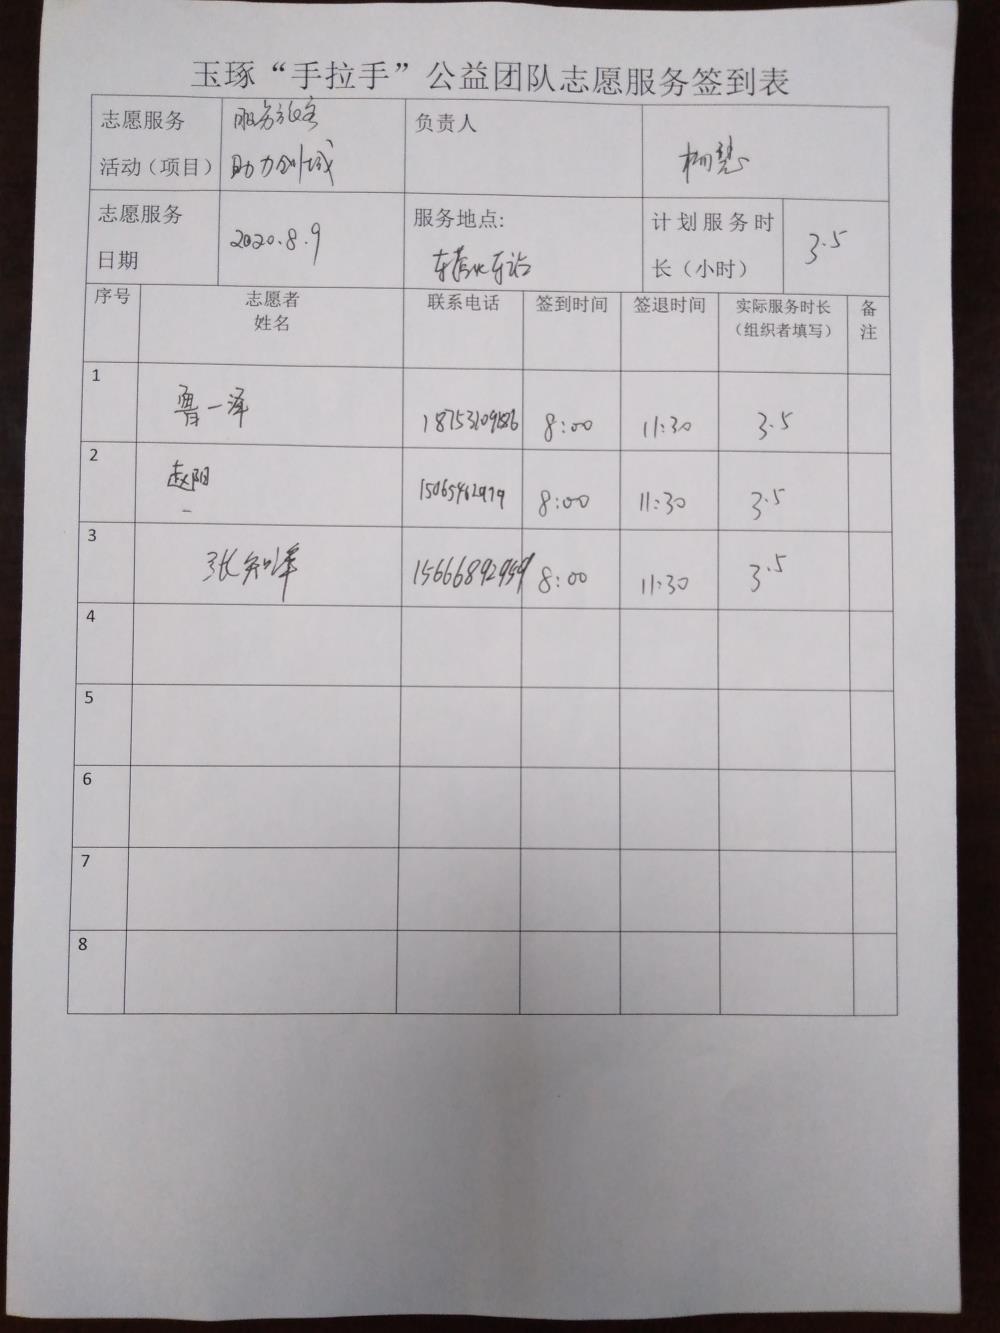 玉琢“手拉手”公益团队志愿服务签到表
志愿服务
活动（项目）
服务旅客
助力创城
负责人
柳慧
志愿服务
日期
2020.8.9
服务地点:
车站
计划服务时
长（小时）
3.5
序号
志愿者
姓名
联系电话
签到时间
签退时间
实际服务时长
（组织者填写）
备
注
1
鲁一泽
8:00
11:30
3.5
2
赵阳
15065462979
8:00
11:30
3.5
3
张知泽
15666892959
8:00
11:30
3.5
4
5
6
7
8